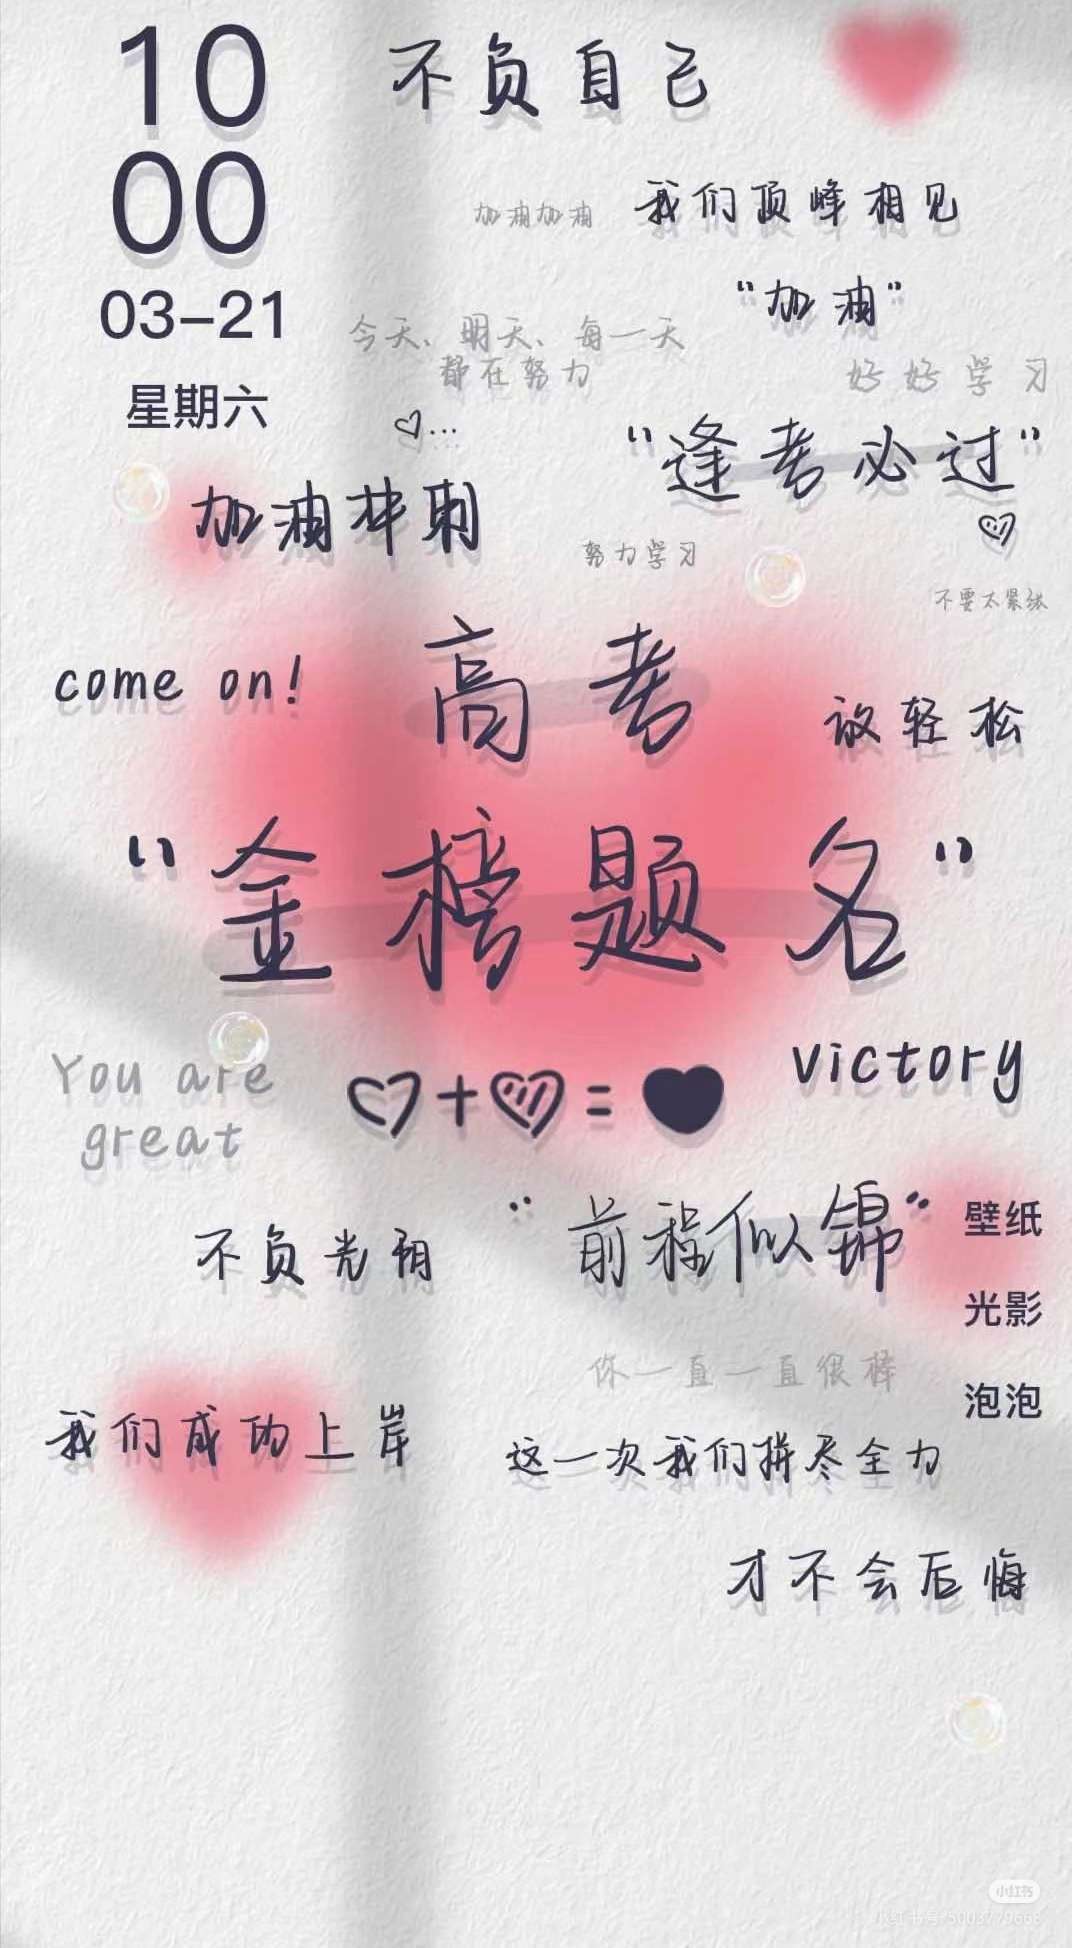 10
00
03-21
星期六
不负自己
加油加油
我们顶峰相见
“加油”
今天、明天、每一天
都在努力
好好学习
“逢考必过”
加油冲刺
努力学习
不要太紧张
come on!
高考
放轻松
“金榜题名”
You are
great
+ =
victory
不负光阴
“前程似锦”
壁纸
光影
泡泡
你一直一直很棒
我们成功上岸
这一次我们拼尽全力
才不会后悔
小红书
小红书号:5003779668